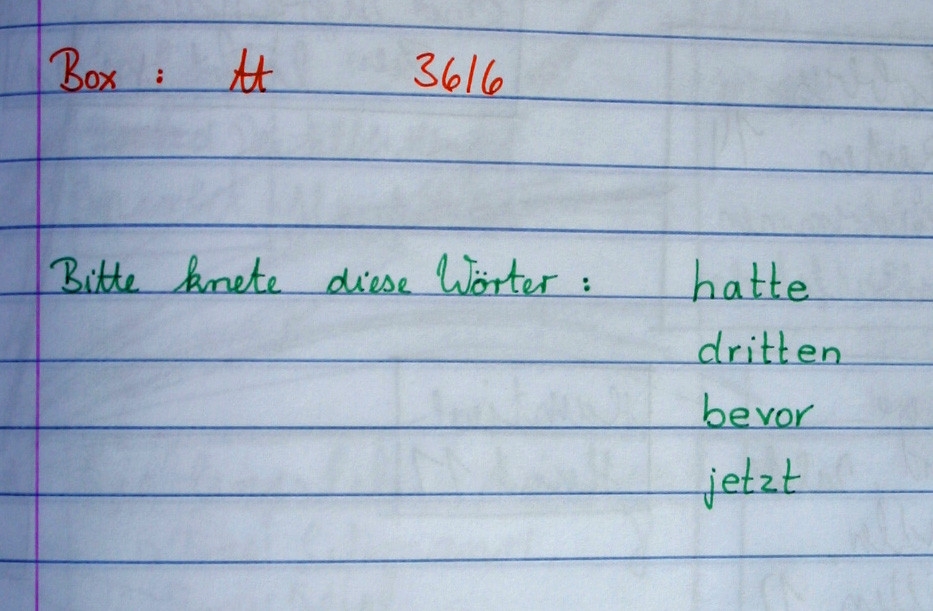 Box : tt 3616
Bitte knete diese Wörter : hatte
dritten
bevor
jetzt